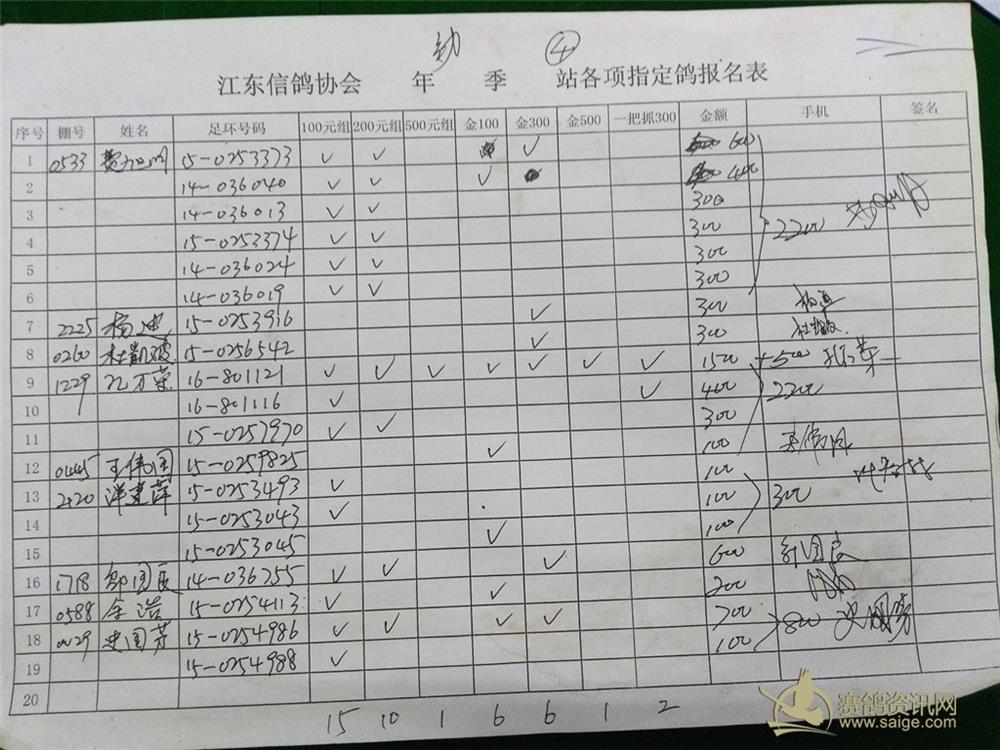 幼 ④
江东信鸽协会 年 季 站各项指定鸽报名表
序号 棚号 姓名 足环号码 100元组 200元组 500元组 金100 金300 金500 一把抓300 金额 手机 签名
1 0533 15-0253373 ✓ ✓ ✓ 600
2 14-036040 ✓ ✓ ✓ 400
3 14-036013 ✓ ✓ 300
4 15-0253374 ✓ ✓ 300 2200
5 14-036024 ✓ ✓ 300
6 14-036019 ✓ ✓ 300
7 2225 杨迪 15-0253916 ✓ 300
8 0260 杜凯波 15-0256542 ✓ 300
9 1229 孔万荣 16-801121 ✓ ✓ ✓ ✓ ✓ ✓ ✓ 1500
10 16-801116 ✓ ✓ 400 2200
11 15-0257970 ✓ ✓ 300
12 0445 王伟国 15-0259825 ✓ 100
13 2220 洋建萍 15-0253493 ✓ 100
14 15-0253043 ✓ 100 300
15 15-0253045 ✓ 100
16 1718 邬国良 14-036755 ✓ ✓ ✓ 600
17 0588 余浩 15-0254113 ✓ ✓ 200
18 0029 史国芳 15-0254986 ✓ ✓ ✓ ✓ 700 800 史国芳
19 15-0254988 ✓ 100
20
15 10 1 6 6 1 2
赛鸽资讯网
www.saige.com